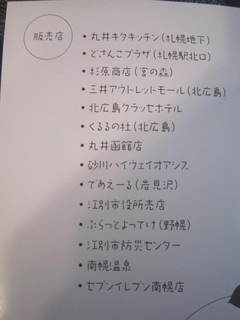 販売店
・丸井キタキッチン(札幌地下)
・どさんこプラザ(札幌駅北口)
・杉原商店(宮の森)
・三井アウトレットモール(北広島)
・北広島クラッセホテル
・くるるの杜(北広島)
・丸井函館店
・砂川ハイウェイオアシス
・であえーる(岩見沢)
・江別市役所売店
・ぷらっとよってけ(野幌)
・江別市防災センター
・南幌温泉
・セブンイレブン南幌店